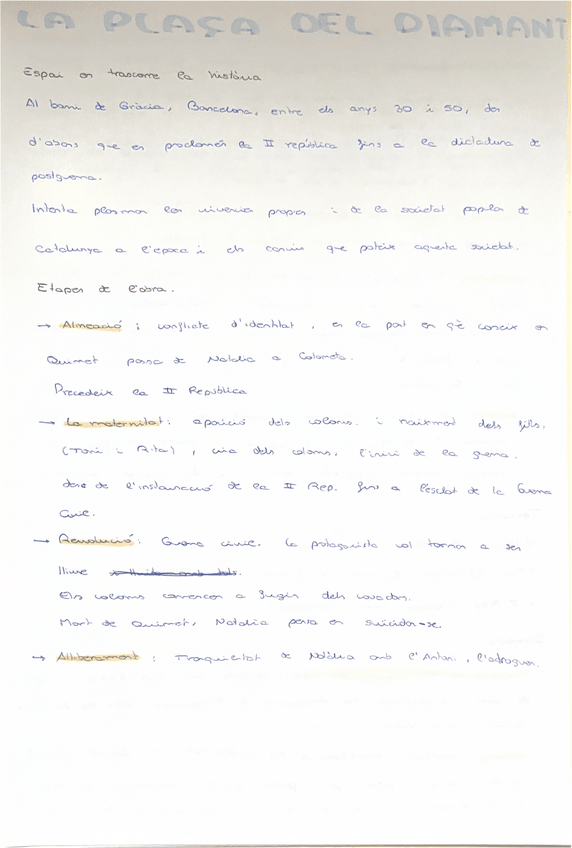 LA PLAÇA DEL DIAMANT
Espai on trascorre la història
Al barri de Gràcia, Barcelona, entre els anys 30 i 50, des
d'abans que es proclamés la II república fins a la dictadura de
postguerra.
Intenta plasmar les vivencies propies i de la societat popular de
Catalunya a l'epoca i els canvis que pateix aquesta societat.
Etapes de l'obra.
→ Alineació : conflicte d'identitat, es la part en què coneix en
Quimet passa de Natalia a Colometa.
Precedeix la II República
→ La maternitat: aparició dels coloms. i naixment dels fills.
(Toni i Rita), cria dels coloms, l'inici de la guerra.
des de l'instauració de la II Rep. fins a l'esclat de la Guerra
Civil.
→ Revolució: Guerra civil. La protagonista vol tornar a ser
lliure
Els coloms comencen a fugir dels covadors.
Mort de Quimet, Natalia pensa en suicidar-se.
→ Alliberament : Tranquilitat de Natàlia amb l'Antoni, l'adroguer.